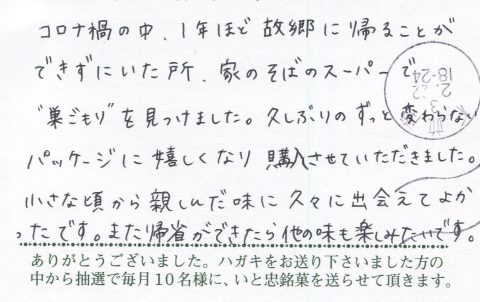 コロナ禍の中、1年ほど故郷に帰ることが
できずにいた所、家のそばのスーパーで
"巣ごもり"を見つけました。久しぶりのずっと変わらない
パッケージに嬉しくなり購入させていただきました。
小さな頃から親しんだ味に久々に出会えてよか
ったです。また帰省ができたら他の味も楽しみたいです。
ありがとうございました。ハガキをお送り下さいました方の
中から抽選で毎月10名様に、いと忠銘菓を送らせて頂きます。
2.22
18-24